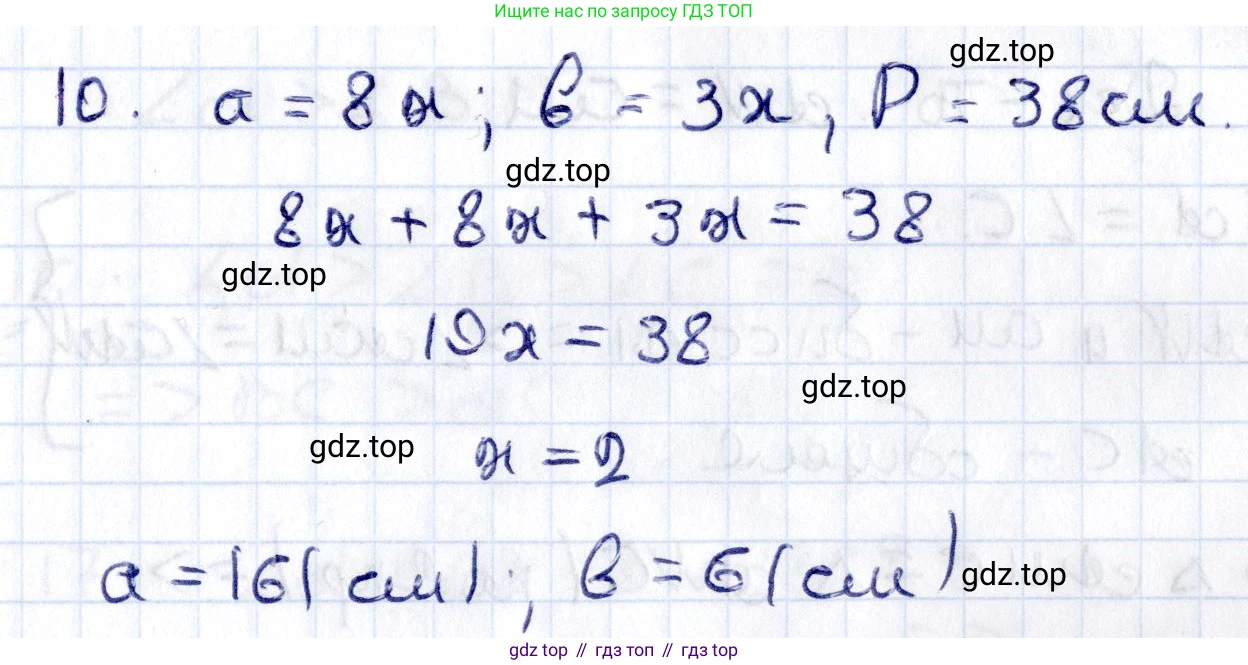 Ищите нас по запросу ГДЗ ТОП
gdz.top
10. a = 8x; b = 3x, P = 38 см.
gdz.top
8x + 8x + 3x = 38
gdz.top
19x = 38
gdz.top
gdz.top
x = 2
a = 16 (см); b = 6 (см)
gdz.top
gdz.top // гдз топ // gdz top